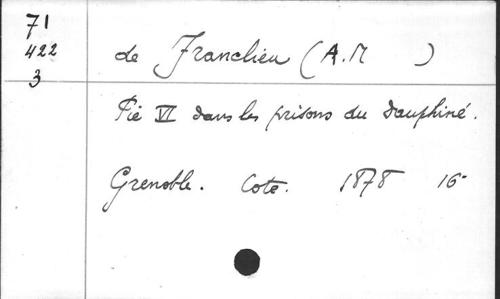 71
422
3
de Franclieu (A.M )
Pie VI dans les prisons du Dauphiné.
Grenoble. Cote. 1878 16°